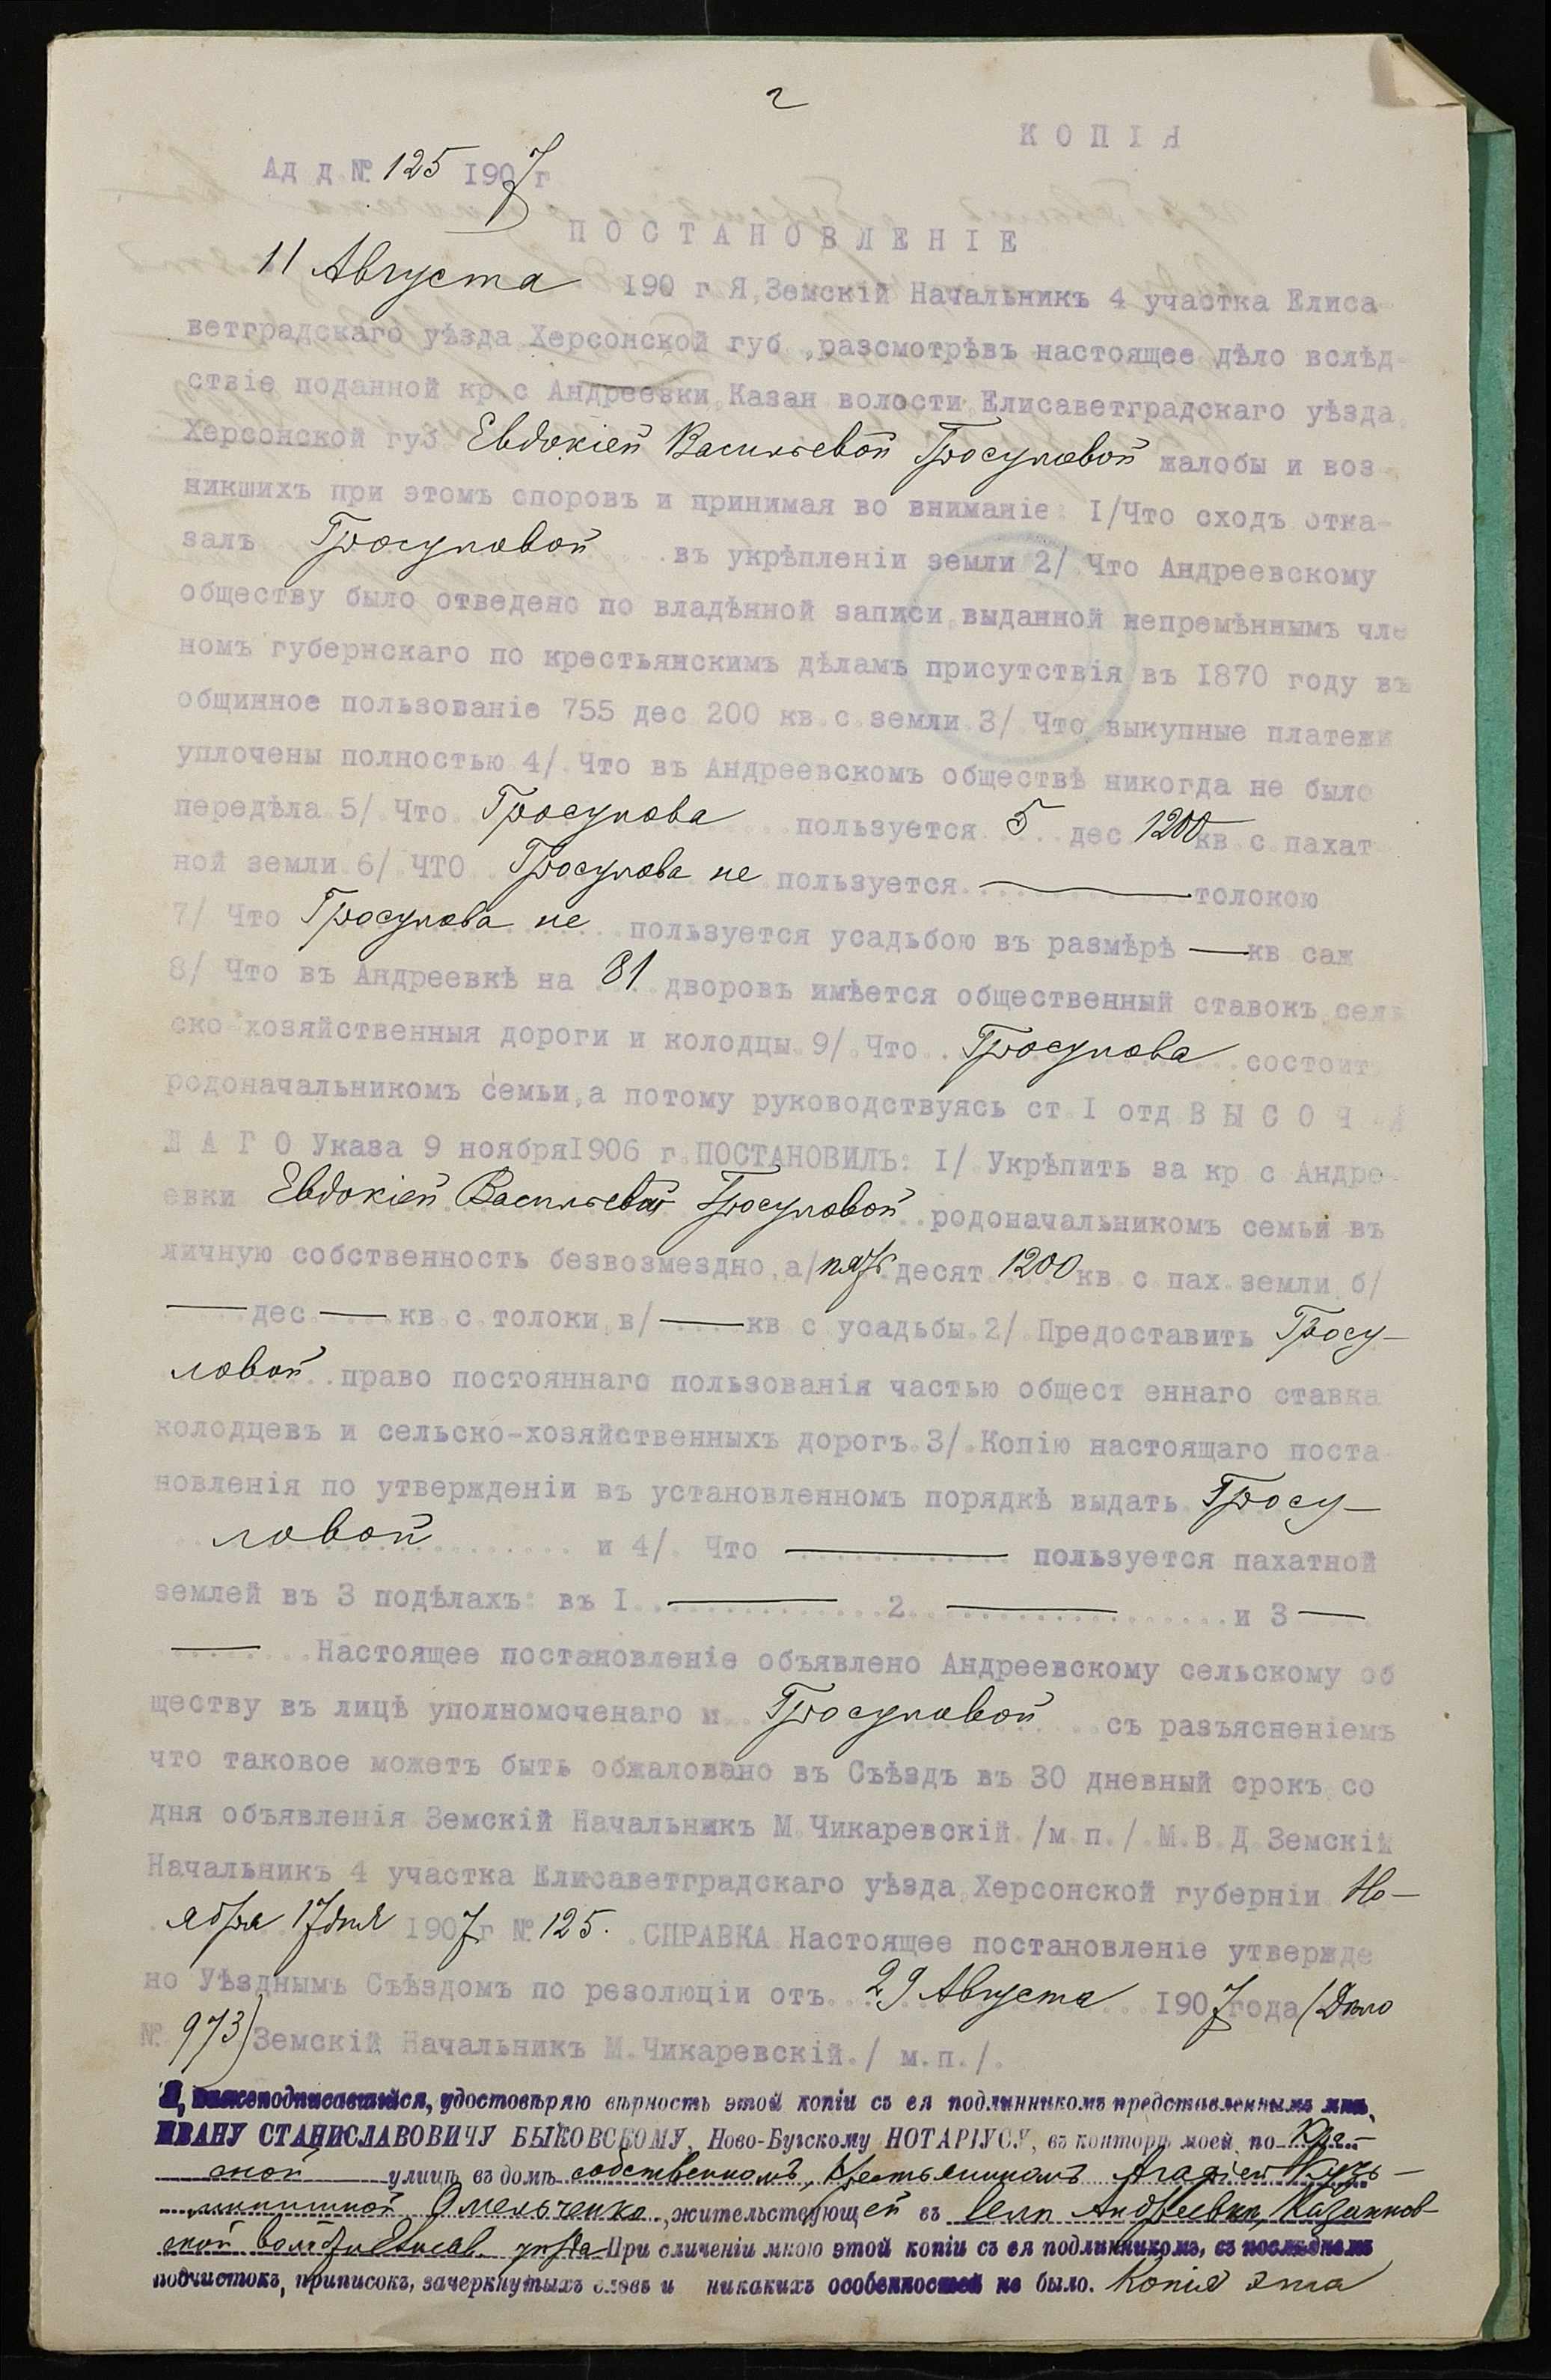 2
КОПІЯ
Ад д № 125 1907 г
ПОСТАНОВЛЕНІЕ
11 Августа 190 г Я, Земскій Начальникъ 4 участка Елиса
ветградскаго уѣзда Херсонской губ , разсмотрѣвъ настоящее дѣло вслѣд
ствіе поданной кр с Андреевки, Казан волости Елисаветградскаго уѣзда
Херсонской губ Евдокіей Васильевой Гросуловой жалобы и воз
никшихъ при этомъ споровъ и принимая во вниманіе: I/Что сходъ отка-
залъ Гросуловой въ укрѣпленіи земли 2/ Что Андреевскому
обществу было отведено по владѣнной записи, выданной непремѣннымъ чле
номъ губернскаго по крестьянскимъ дѣламъ присутствія въ I870 году въ
общинное пользованіе 755 дес 200 кв с земли 3/ Что выкупные платежи
уплочены полностью 4/ Что въ Андреевскомъ обществѣ никогда не было
передѣла 5/ Что Гросулова пользуется 5 дес 1200 кв с пахат
ной земли 6/ ЧТО Гросулова не пользуется — толокою
7/ Что Гросулова не пользуется усадьбою въ размѣрѣ — кв саж
8/ Что въ Андреевкѣ на 81 дворовъ имѣется общественный ставокъ сель
ско хозяйственныя дороги и колодцы 9/ Что Гросулова состоит
родоначальникомъ семьи, а потому руководствуясь ст I отд В Ы С О Ч А
Ш А Г О Указа 9 ноября I906 г ПОСТАНОВИЛЪ: I/ Укрѣпить за кр с Андре
евки Евдокіей Васильевой Гросуловой родоначальникомъ семьи въ
личную собственность безвозмездно, а/ пять десят 1200 кв с пах земли б/
— дес — кв с толоки, в/ — кв с усадьбы 2/ Предоставить Гросу-
ловой право постояннаго пользованія частью общест еннаго ставка
колодцевъ и сельско-хозяйственныхъ дорогъ 3/ Копію настоящаго поста
новленія по утвержденіи въ установленномъ порядкѣ выдать Гросу-
ловой и 4/ Что — пользуется пахатной
землей въ 3 подѣлахъ: въ I — 2 — и 3 —
— Настоящее постановленіе объявлено Андреевскому сельскому об
ществу въ лицѣ уполномоченаго и Гросуловой съ разъясненіемъ
что таковое можетъ быть обжаловано въ Съѣздъ въ 30 дневный срокъ со
дня объявленія Земскій Начальникъ М Чикаревскій /м п / М.В.Д Земскій
Начальникъ 4 участка Елисаветградскаго уѣзда Херсонской губерніи Но-
ября 17 дня 1907 г № 125. СПРАВКА Настоящее постановленіе утвержде
но Уѣзднымъ Съѣздомъ по резолюціи отъ 29 Августа 1907 года (Дѣло
№ 973) Земскій Начальникъ М.Чикаревскій./ м.п./.
Я, нижеподписавшійся, удостовѣряю вѣрность этой копіи съ ея подлинникомъ представленнымъ мнѣ,
ИВАНУ СТАНИСЛАВОВИЧУ БЫКОВСКОМУ, Ново-Бугскому НОТАРІУСУ, въ конторѣ моей, по
улицѣ, въ домѣ собственномъ, крестьянином
Омельченко, жительствующей въ селѣ Андреевкѣ, Казанков-
ской волости Елисав. уѣзда При сличеніи мною этой копіи съ ея подлинникомъ, съ послѣднемъ
подчистокъ, приписокъ, зачеркнутыхъ словъ и никакихъ особенностей не было. Копія эта